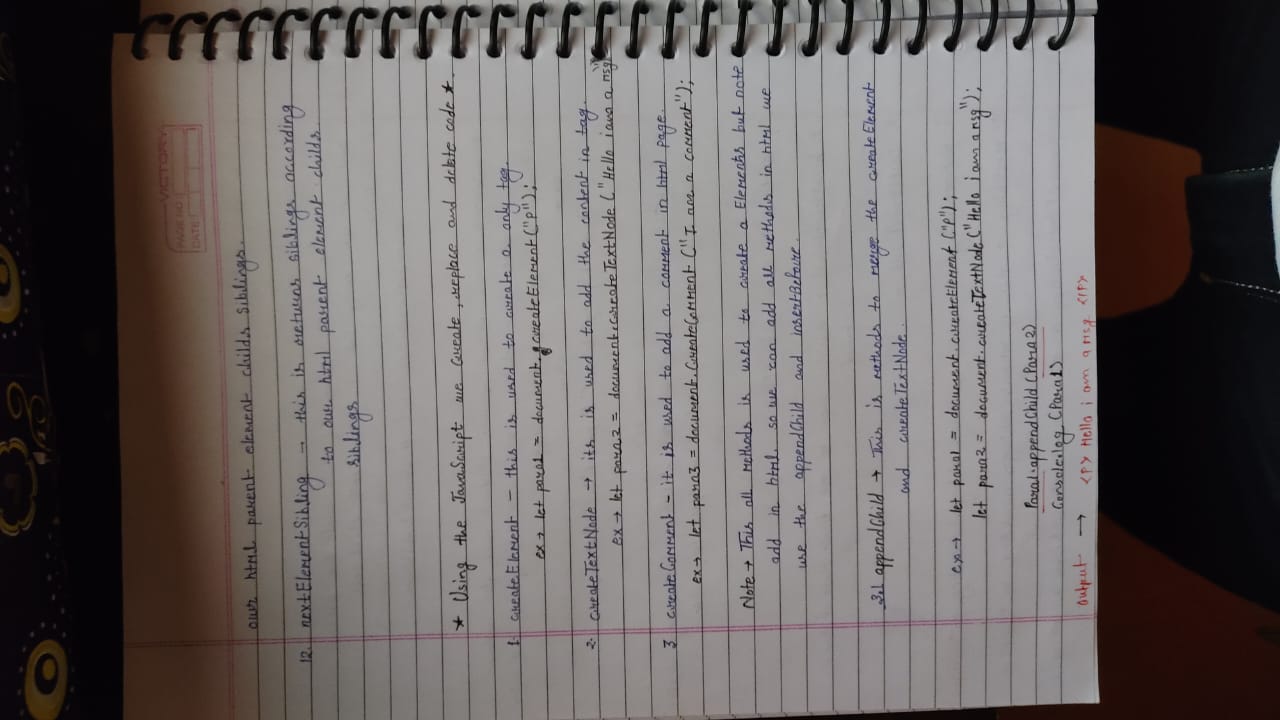 VICTORY
PAGE NO
DATE
our html parent element childs siblings.
12. nextElementSibling → this is returns siblings according
to our html parent element childs.
siblings
* Using the JavaScript we create, replace and delete code *.
1. createElement - this is used to create a only tag.
ex → let para1 = document.createElement("p");
2. createTextNode → its is used to add the content in tag.
ex → let para2 = document.createTextNode("Hello i am a msg")
3 createComment - it is used to add a comment in html page.
ex → let para3 = document.createComment("I am a comment");
Note → This all methods is used to create a Elements but note
add in html. so we can add all methods in html we
use the appendChild and insertBefore.
appendChild → This is methods to merge the createElement
and createTextNode.
ex → let para1 = document.createElement("p");
let para2 = document.createTextNode("Hello i am a msg");
Para1.appendChild(Para2)
Console.log(Para1)
Output → <P> Hello i am a msg </P>